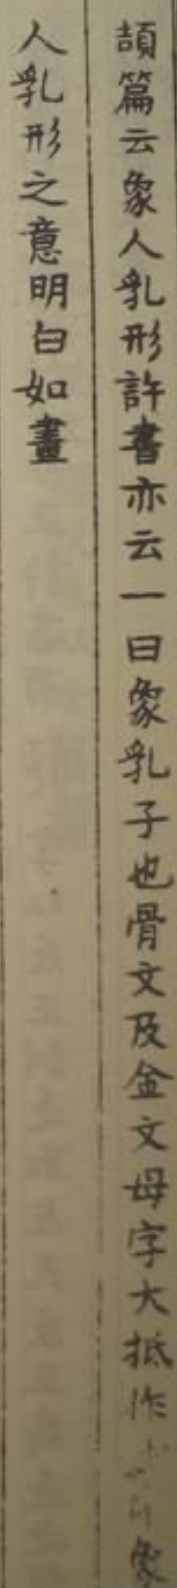 頡篇云象人乳形許書亦云一曰象乳子也骨文及金文母字大抵作象
人乳形之意明白如畫